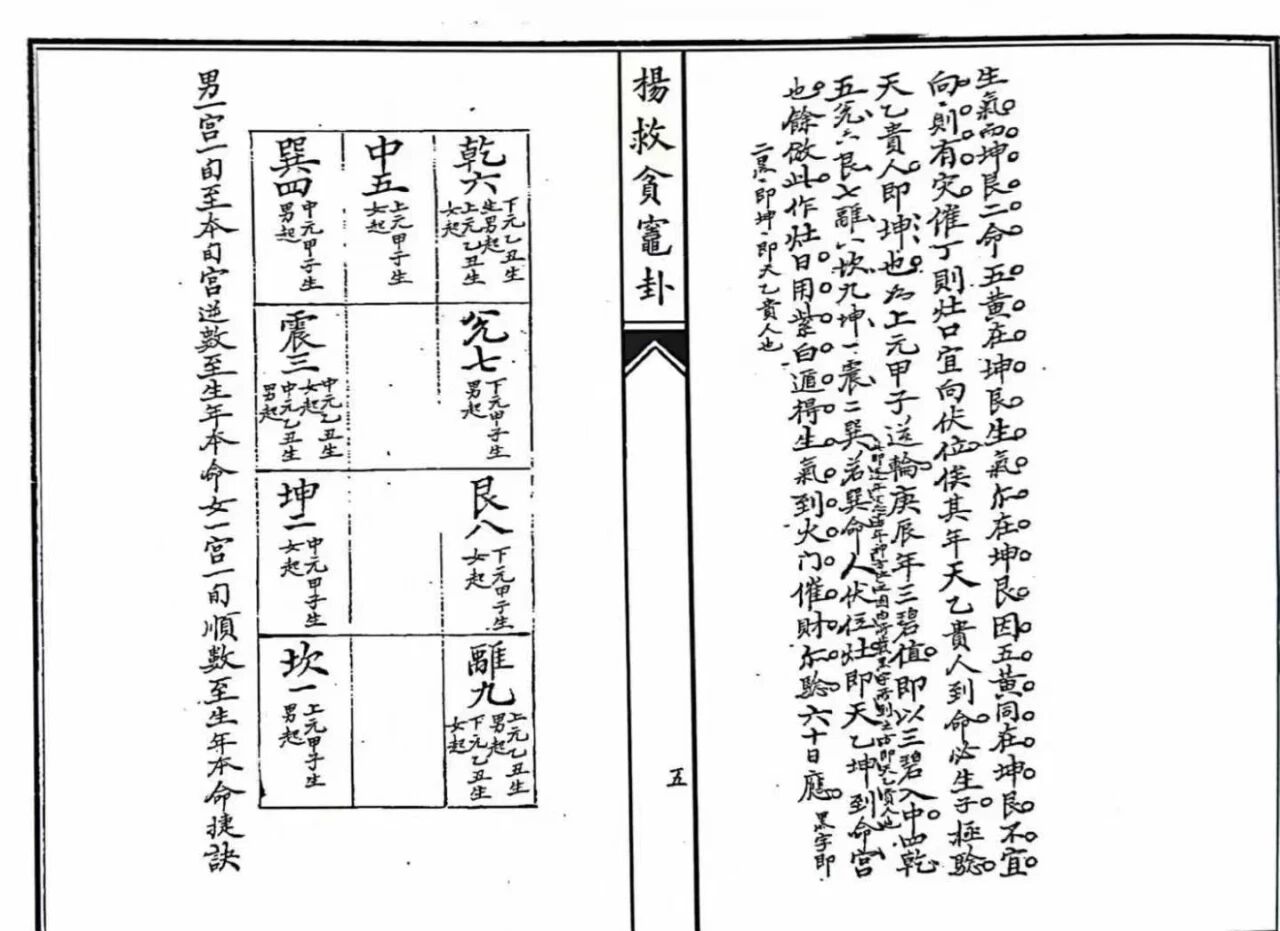 生氣而坤艮二命五黃在坤艮生氣尓在坤艮因五黃同在坤艮不宜
向則有灾催丁則灶口宜向伏位俟其年天乙貴人到命必生子極驗
天乙貴人即坤也如上元甲子逆輪庚辰年三碧值即以三碧入中四乾
五兊六艮七離八坎九坤一震二巽若巽命人伏位灶即天乙坤到命宮
也餘倣此作灶日用紫白遁得生氣到火门催財尓驗六十日應
黑字即
二黑即坤即天乙貴人也
楊救貧竈卦
五
乾六
下元乙丑生
男起
上元乙丑生
女起
中五
上元甲子生
女起
巽四
中元甲子生
男起
兊七
下元甲子生
男起
震三
中元乙丑生
女起
中元乙丑生
男起
艮八
下元甲子生
女起
坤二
中元甲子生
女起
離九
上元乙丑生
男起
下元乙丑生
女起
坎一
上元甲子生
男起
男一宮一旬至本旬宮逆數至生年本命女一宮一旬順數至生年本命捷訣